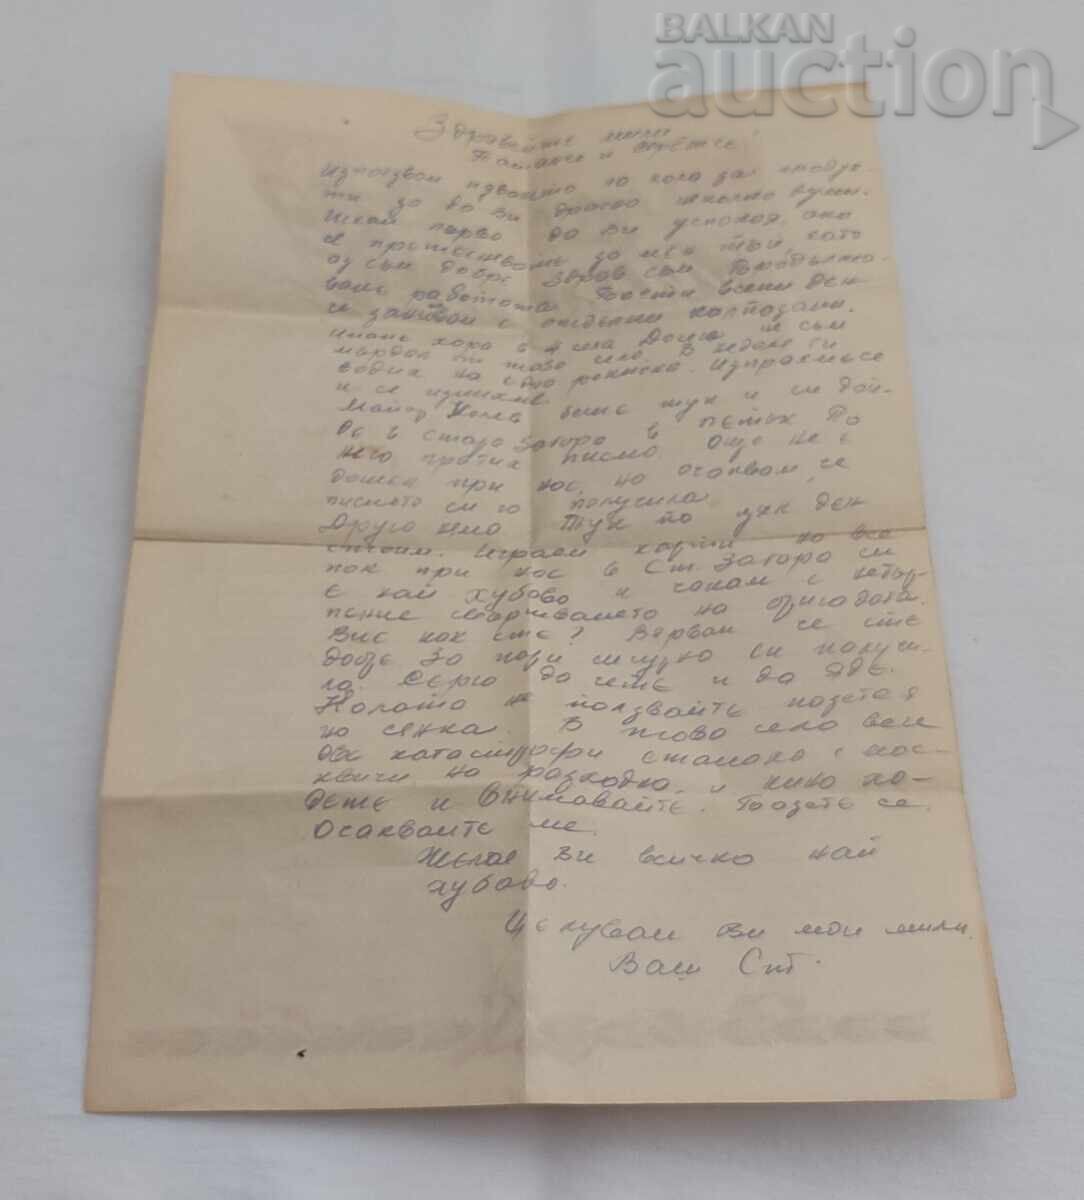 BALKAN
auction
Здравейте мили
и
Използвам идването на кола за продук-
ти за да Ви драсна няколко думи.
Искам първо да Ви успокоя, ако
се притеснявате за мен тъй като
аз съм добре здрав съм Продължа-
вам работата. Почти всеки ден
се занимавам с отделни
имаме хора в 4 села Досега не съм
мърдал от това село. В неделя ги
водих на една рекичка. Изпрахме се
и се изкъпахме.
Майор Колев беше тук и си дой-
де в Стара Загора в петък По
него пратих писмо. Още не е
дошъл при нас, но очаквам, че
писмото си го получила.
Друго няма. Тук по цял ден
спим. Играем карти но все
пак при нас в Ст. Загора си
е най хубаво и чакам с нетър-
пение свършването на бригадата.
Вие как сте? Вярвам че сте
добре За пари мисля си получи-
ла. Серго да чете и да яде.
Колата не ползвайте пазете я
на сянка. В това село вече
две катастрофи станаха с мос-
квичи на разходка, и кино хо-
дете и внимавайте. Пазете се.
Очаквайте ме.
Желая Ви всичко най
хубаво.
Целувам Ви мои мили.
Ваш Ст.